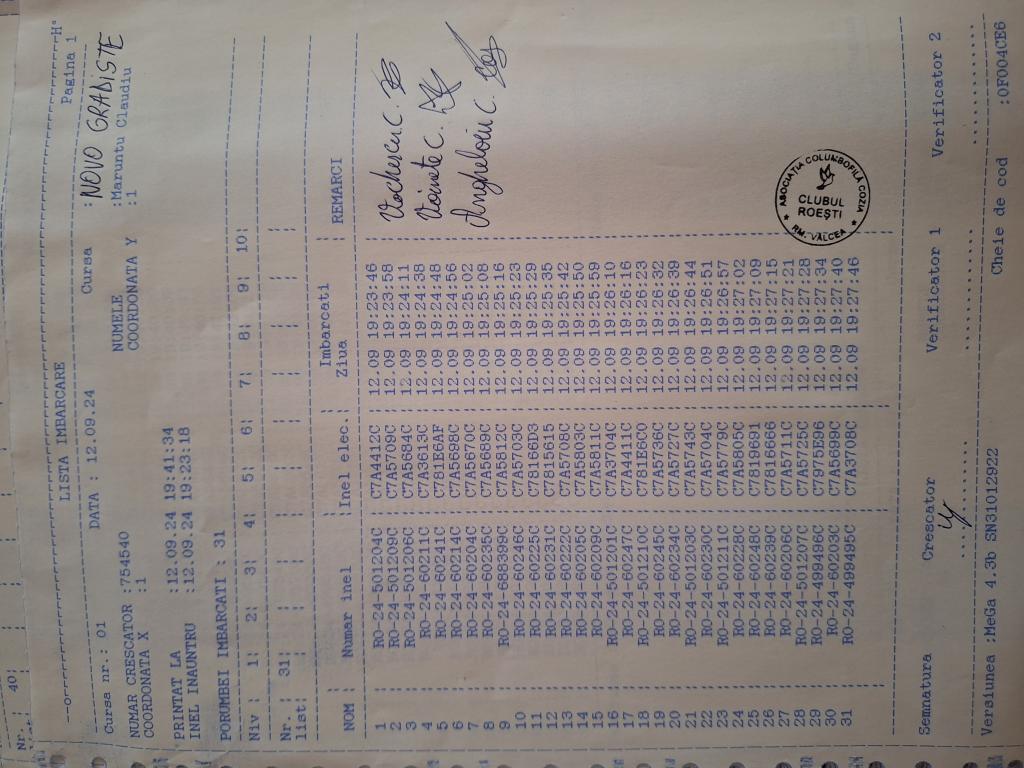 Nr.: 40:
LISTA IMBARCARE
Pagina 1
Cursa nr.: 01 DATA : 12.09.24 Cursa : NOVO GRADISTE
NUMAR CRESCATOR :754540 NUMELE :Maruntu Claudiu
COORDONATA X :1 COORDONATA Y :1
PRINTAT LA :12.09.24 19:41:34
INEL INAUNTRU :12.09.24 19:23:18
PORUMBEI IMBARCATI : 31
Niv : 1: 2: 3: 4: 5: 6: 7: 8: 9: 10:
Nr. : 31:
list:
Imbarcati
NOM : Numar inel : Inel elec.: Ziua : REMARCI
1 : RO-24-5012204C : C7A4412C : 12.09 19:23:46
2 : RO-24-5012209C : C7A5709C : 12.09 19:23:58
3 : RO-24-5012206C : C7A5684C : 12.09 19:24:11
4 : RO-24-60211C : C7A3613C : 12.09 19:24:38
5 : RO-24-60241C : C781E6AF : 12.09 19:24:48
6 : RO-24-60214C : C7A5698C : 12.09 19:24:56
7 : RO-24-60204C : C7A5670C : 12.09 19:25:02
8 : RO-24-60235C : C7A5689C : 12.09 19:25:08
9 : RO-24-688399C : C7A5812C : 12.09 19:25:16
10 : RO-24-60246C : C7A5703C : 12.09 19:25:23
11 : RO-24-60225C : C78166D3 : 12.09 19:25:29
12 : RO-24-60231C : C7815615 : 12.09 19:25:35
13 : RO-24-60222C : C7A5708C : 12.09 19:25:42
14 : RO-24-60205C : C7A5803C : 12.09 19:25:50
15 : RO-24-60209C : C7A5811C : 12.09 19:25:59
16 : RO-24-5012201C : C7A3704C : 12.09 19:26:10
17 : RO-24-60247C : C7A4411C : 12.09 19:26:16
18 : RO-24-5012210C : C781E6C0 : 12.09 19:26:23
19 : RO-24-60245C : C7A5736C : 12.09 19:26:32
20 : RO-24-60234C : C7A5727C : 12.09 19:26:39
21 : RO-24-5012203C : C7A5743C : 12.09 19:26:44
22 : RO-24-60230C : C7A5704C : 12.09 19:26:51
23 : RO-24-5012211C : C7A5779C : 12.09 19:26:57
24 : RO-24-60228C : C7A5805C : 12.09 19:27:02
25 : RO-24-60248C : C7819691 : 12.09 19:27:09
26 : RO-24-60239C : C7816666 : 12.09 19:27:15
27 : RO-24-60206C : C7A5711C : 12.09 19:27:21
28 : RO-24-5012207C : C7A5725C : 12.09 19:27:28
29 : RO-24-499496C : C7975E96 : 12.09 19:27:34
30 : RO-24-60203C : C7A5699C : 12.09 19:27:40
31 : RO-24-499495C : C7A3708C : 12.09 19:27:46
Vochescu C.
Voinete C.
Angheloiu C.
ASOCIATIA COLUMBOFILA COZIA
CLUBUL
ROEȘTI
RM. VÂLCEA
Semnatura Crescator Verificator 1 Verificator 2
Versiunea :MeGa 4.3b SN31012922 Cheie de cod :0F004CE6